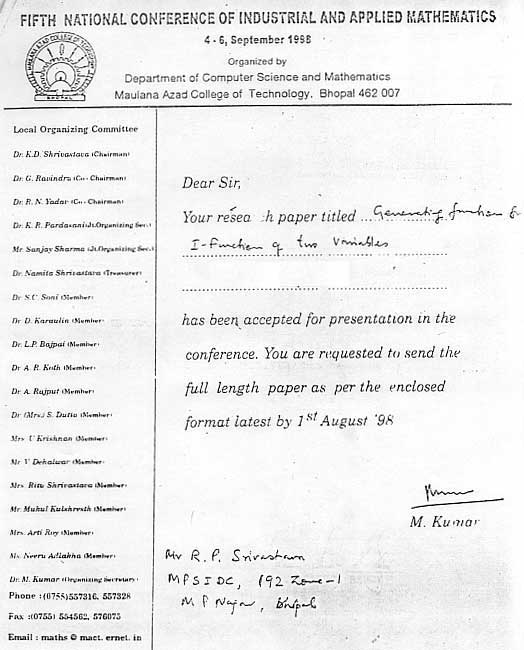 FIFTH NATIONAL CONFERENCE OF INDUSTRIAL AND APPLIED MATHEMATICS
4 - 6, September 1998
Organized by
Department of Computer Science and Mathematics
Maulana Azad College of Technology, Bhopal 462 007
MAULANA AZAD COLLEGE OF TECHNOLOGY
BHOPAL
Local Organizing Committee
Dr. K.D. Shrivastava (Chairman)
Dr. G. Ravindra (Co- Chairman)
Dr. R. N. Yadar (Co- Chairman)
Dr. K. R. Pardasani (Jt.Organizing Sec.)
Mr. Sanjay Sharma (Jt.Organizing Sec.)
Dr. Namita Shrivastava (Treasurer)
Dr. S.C. Soni (Member)
Dr. D. Karaulin (Member)
Dr. L.P. Bajpai (Member)
Dr. A. R. Koth (Member)
Dr. A. Rajput (Member)
Dr (Mrs.) S. Dutta (Member)
Mrs. U Krishnan (Member)
Mr V Dehalwar (Member)
Mrs. Ritu Shrivastava (Member)
Mr. Mukul Kulshresth (Member)
Mrs. Arti Roy (Member)
Ms. Neeru Adlakha (Member)
Dr. M. Kumar (Organizing Secretary)
Phone : (0755)557316, 557328
Fax :(0755) 554562, 576075
Email : maths @ mact. ernet. in
Dear Sir,
Your resea ch paper titled ... Generating function for
I-Function of two variables
has been accepted for presentation in the
conference. You are requested to send the
full length paper as per the enclosed
format latest by 1st August '98
M. Kumar
Mr R. P. Srivastava
MPSIDC, 192 Zone-1
M P Nagar, Bhopal